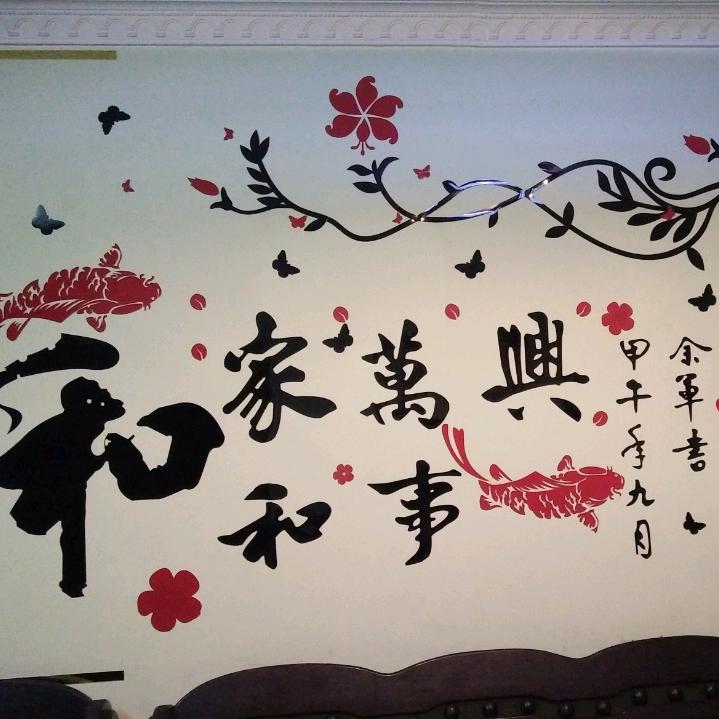 和
家和
萬事
興
甲午年九月
余军書